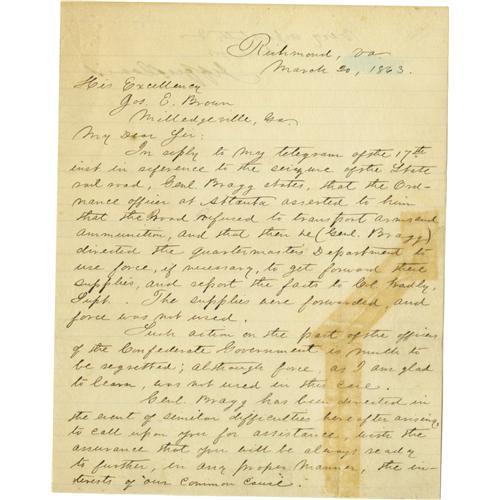 Richmond, Va
March 20, 1863.
His Excellency
Jos. E. Brown
Milledgeville, Ga.
My Dear Sir:
In reply to my telegram of the 17th
inst in reference to the seizure of the State
rail road, Genl Bragg states, that the Ord-
nance officer at Atlanta asserted to him
that the Road refused to transport arms and
ammunition, and that then he (Genl. Bragg)
directed the quartermaster's Department to
use force, if necessary, to get forward these
supplies, and report the facts to Col. Wadly,
Supt. The supplies were forwarded, and
force was not used.
Such action on the part of the officers
of the Confederate Government is much to
be regretted; although force, as I am glad
to learn, was not used in this case.
Genl. Bragg has been directed in
the event of similar difficulties hereafter arising,
to call upon you for assistance, with the
assurance that you will be always ready
to further, in any proper manner, the in-
terests of our common cause.